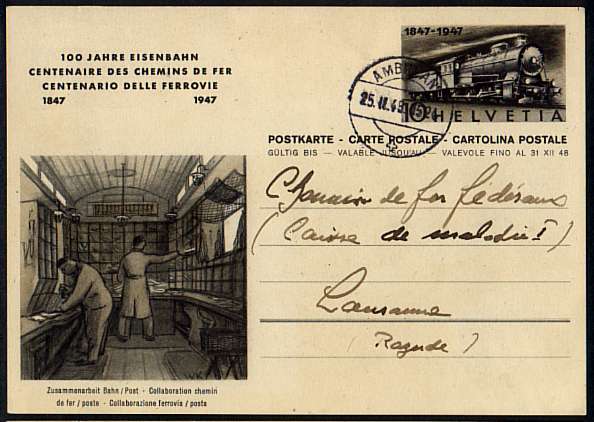 100 JAHRE EISENBAHN
CENTENAIRE DES CHEMINS DE FER
CENTENARIO DELLE FERROVIE
1847 1947
1847-1947
AMBULANT
25.II.48
HELVETIA
POSTKARTE - CARTE POSTALE - CARTOLINA POSTALE
GÜLTIG BIS — VALABLE JUSQU'AU — VALEVOLE FINO AL 31 XII 48
Chemins de fer fédéraux
(Caisse de maladie I)
Lausanne
(Razude)
WK
Zusammenarbeit Bahn / Post - Collaboration chemin
de fer / poste - Collaborazione ferrovia / posta